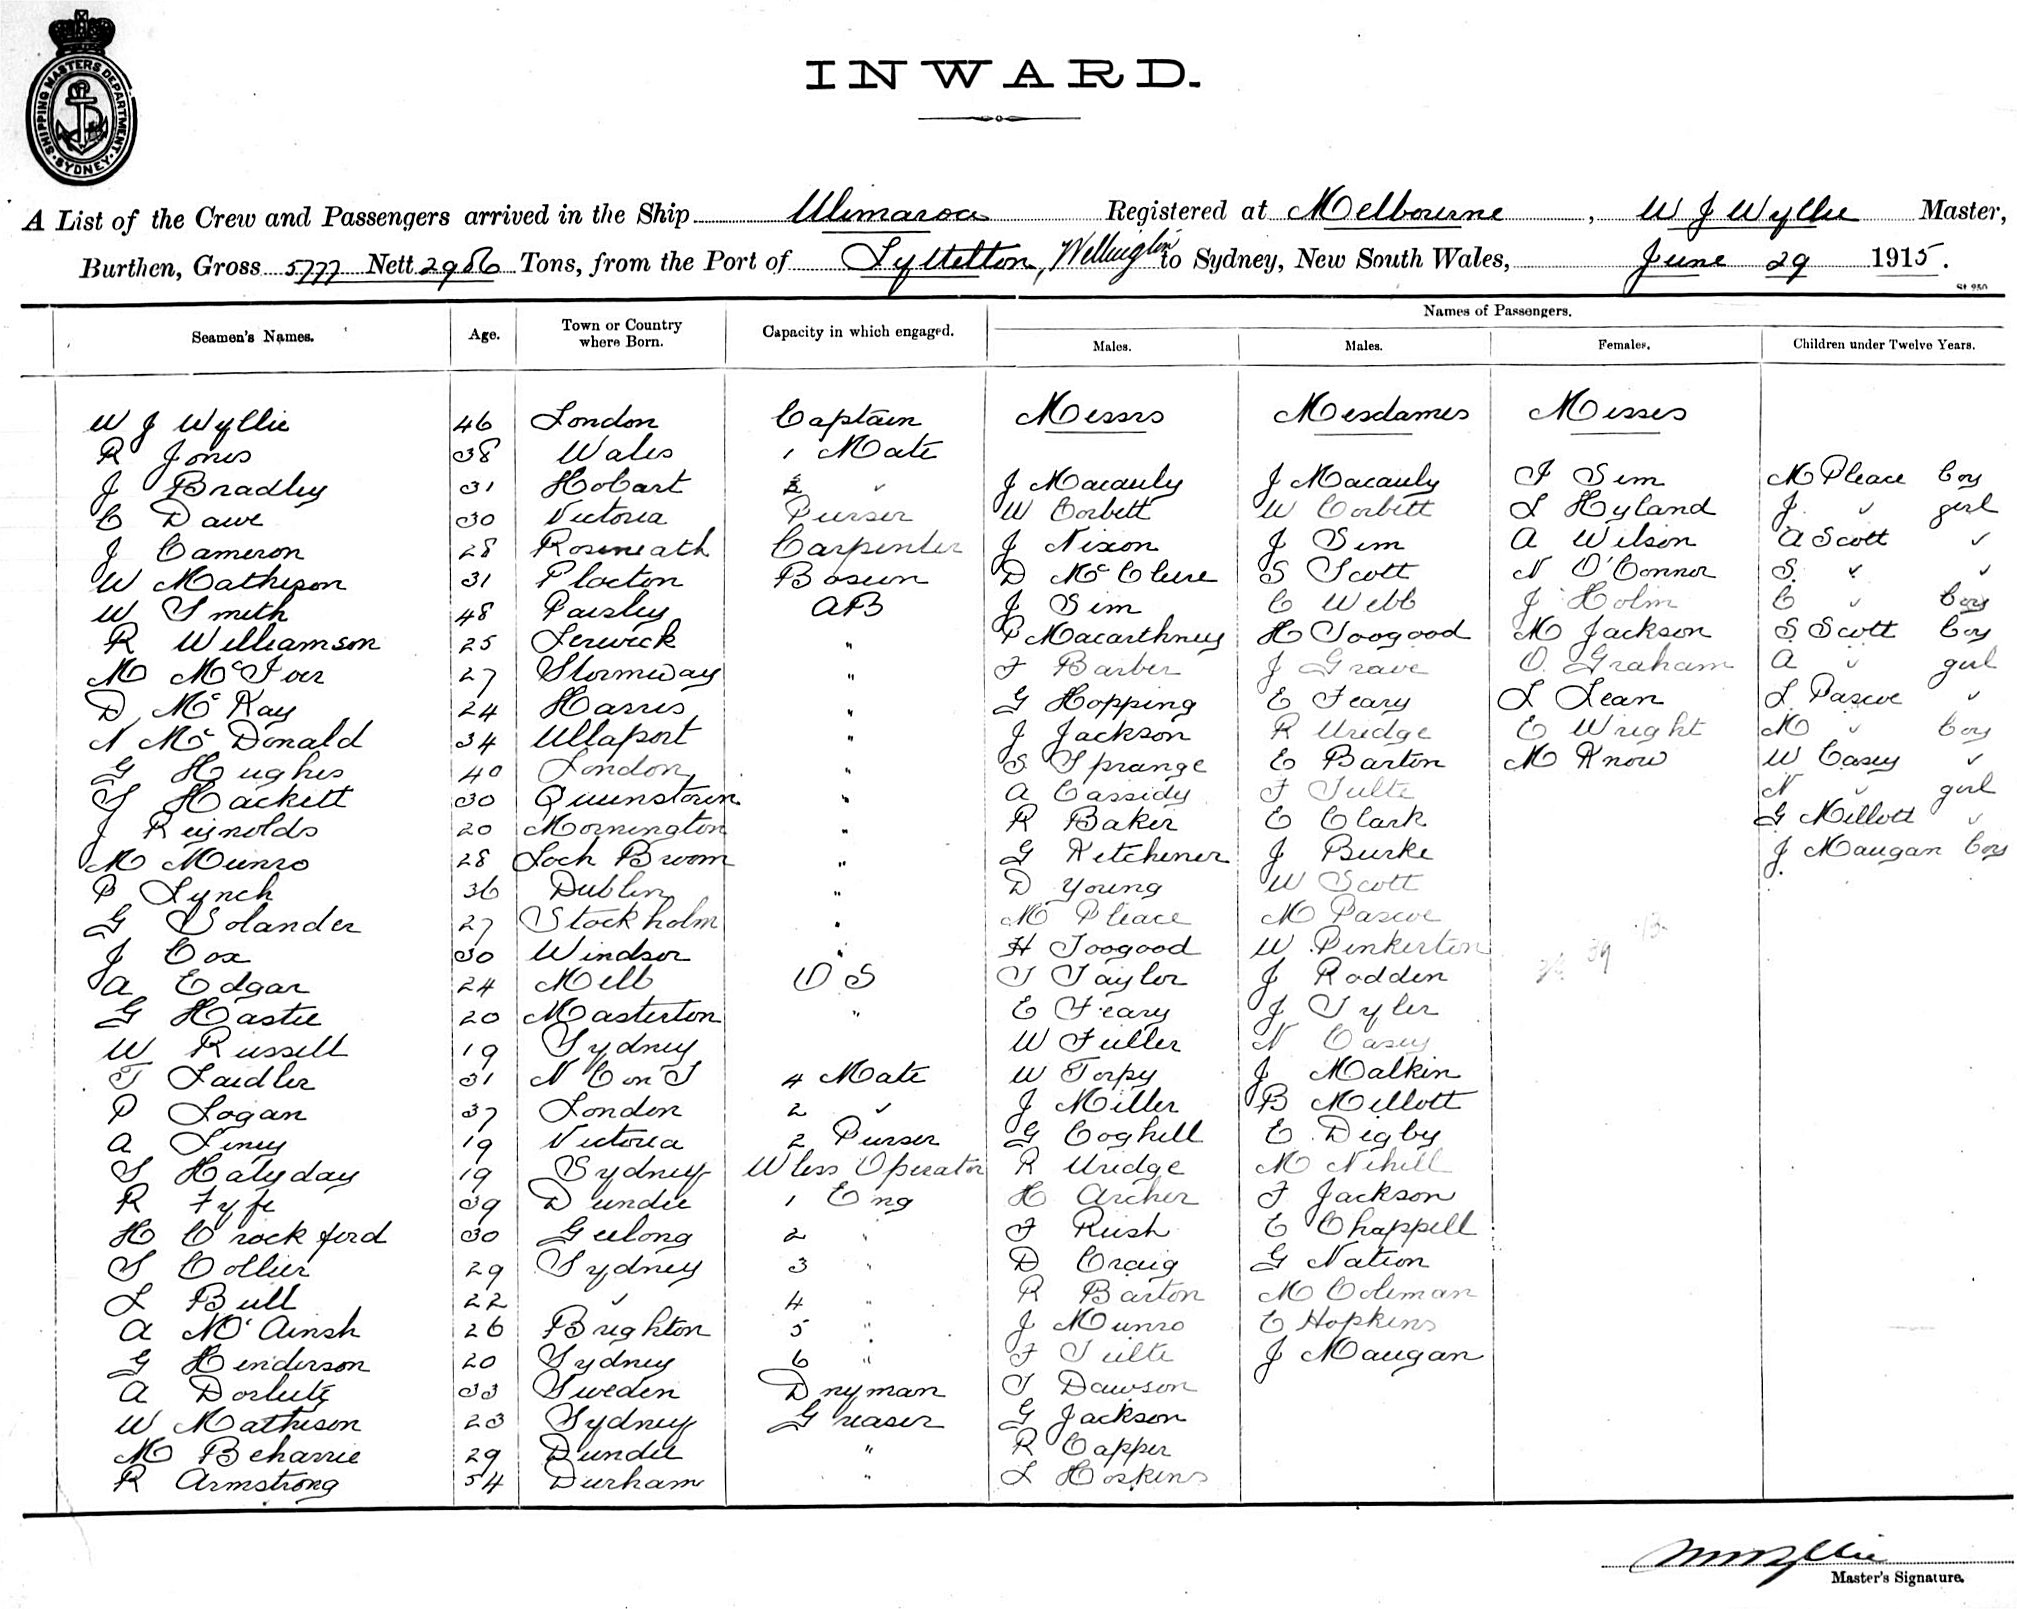 INWARD.
SHIPPING MASTERS DEPARTMENT
SYDNEY
A List of the Crew and Passengers arrived in the Ship Ulimaroa Registered at Melbourne, W J Wyllie Master,
Burthen, Gross 5777 Nett 2986 Tons, from the Port of Lyttelton, Wellington to Sydney, New South Wales, June 29 1915.
Names of Passengers.
Seamen's Names. Age. Town or Country where Born. Capacity in which engaged. Males. Males. Females. Children under Twelve Years.
W J Wyllie 46 London Captain Messrs Mesdames Misses
R Jones 38 Wales 1 Mate
J Bradley 31 Hobart 3 " J Macauly J Macauly F Sim M Pleace boy
C Dawe 30 Victoria Purser W Corbett W Corbett L Hyland J " girl
J Cameron 28 Roseneath Carpenter J Nixon J Sim A Wilson A Scott "
W Matheson 31 Plocton Bosun D McClure S Scott N O'Connor S " "
W Smith 48 Paisley AB J Sim C Webb J Holm C " boy
R Williamson 25 Lerwick " P Macarthney H Toogood M Jackson S Scott boy
M McIver 27 Stornway " F Barber J Grave O Graham A " girl
D McKay 24 Harris " G Hopping E Feary L Lean L Pascoe "
N McDonald 34 Ullaport " J Jackson R Uridge E Wright M " boy
G Hughes 40 London " S Sprange E Barton M Know W Casey "
T Hackett 30 Queenstown " A Cassidy F Tulte N " girl
J Reynolds 20 Mornington " R Baker E Clark G Millott "
M Munro 28 Loch Broom " G Ketchener J Burke J Maugan boy
P Lynch 36 Dublin " D Young W Scott
G Solander 27 Stockholm " M Pleace M Pascoe
J Cox 30 Windsor " H Toogood W Penkerton
A Edgar 24 Melb OS T Taylor J Rodden
G Hastie 20 Masterton " E Feary J Tyler
W Russell 19 Sydney W Fuller N Casey
T Laidler 31 N C on T 4 Mate W Torpy J Malkin
P Logan 37 London 2 " J Miller B Millott
A Liney 19 Victoria 2 Purser G Coghill E Digby
S Halyday 19 Sydney Wless Operator R Uridge M Nihill
R Fyfe 39 Dundee 1 Eng H Archer F Jackson
H Crockford 30 Geelong 2 " F Rush E Chappell
S Collier 29 Sydney 3 " D Craig G Nation
L Bull 22 " 4 " R Barton M Coleman
A McAinsh 26 Brighton 5 " J Munro E Hopkins
G Henderson 20 Sydney 6 " F Tulte J Maugan
A 33 Sweden Dnyman T Dawson
W Matheson 23 Sydney Greaser G Jackson
M Beharrie 29 Dundee " R Capper
R Armstrong 54 Durham " L Hoskins
Master's Signature.